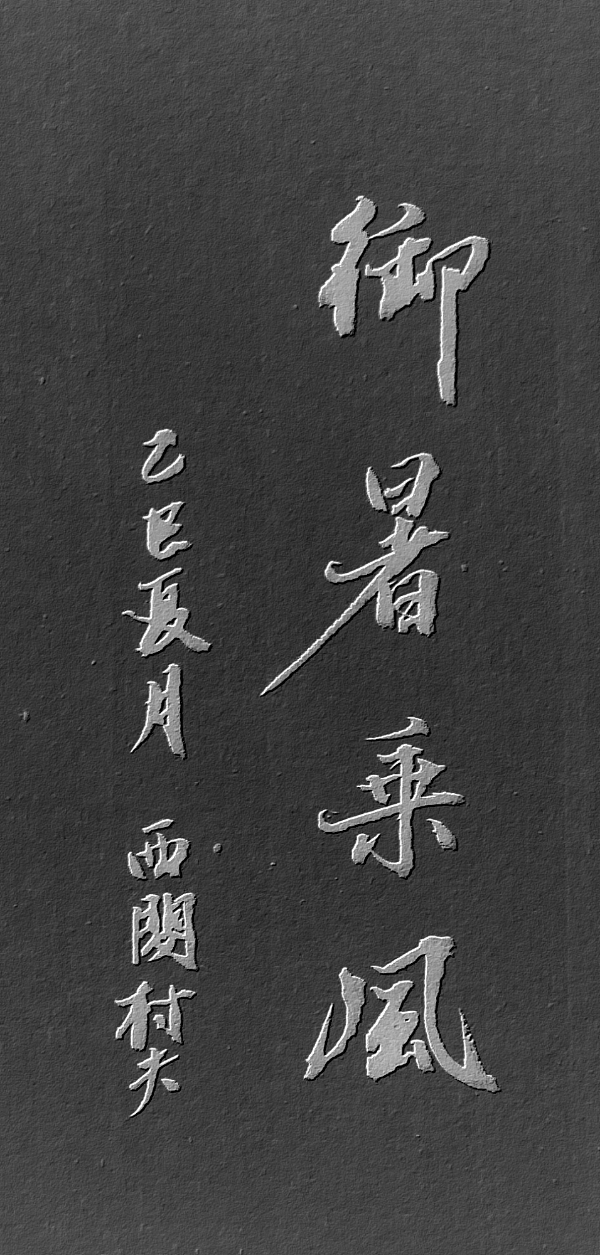 御暑乘風
乙巳夏月 西関村夫